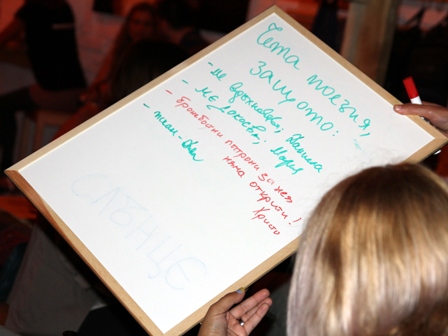 Чета поезия,
защото:
- ме вдъхновява, Даниела
- ме докосва, Мария
- бронебойни патрони за нея
няма открити!
Христо
СЛЪНЦЕ